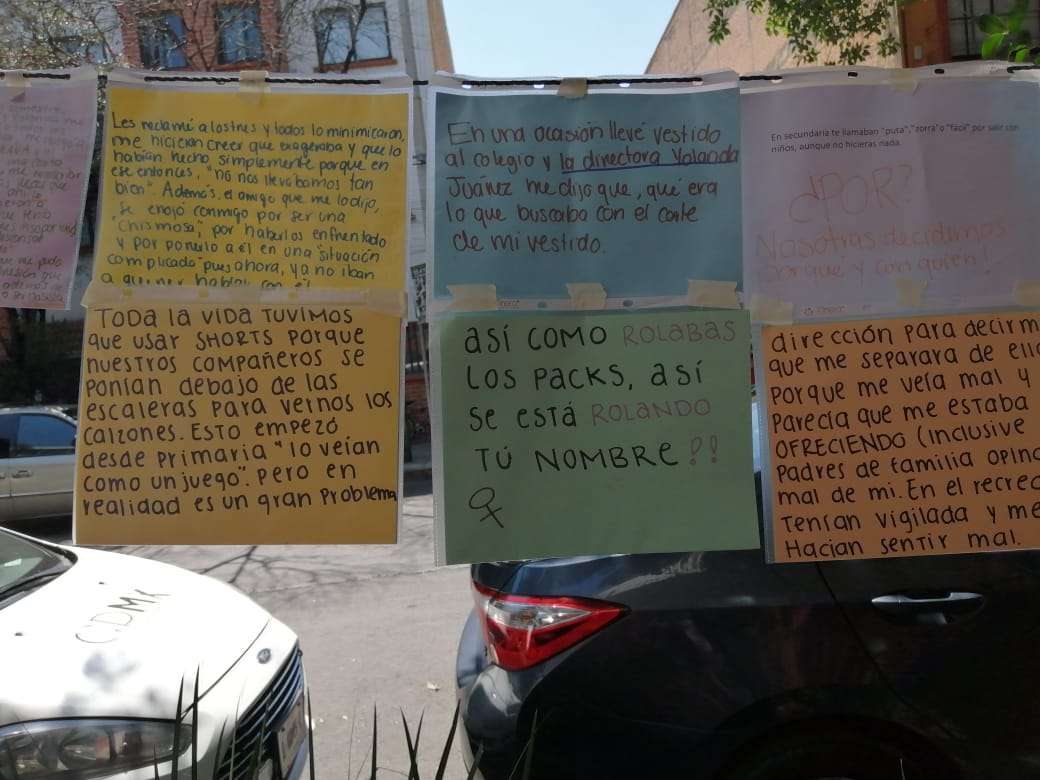 Les reclamé a los tres y todos lo minimizaron,
me hicieron creer que exageraba y que lo
habían hecho, simplemente porque en
ese entonces, "no nos llevábamos tan
bien". Además, el amigo que me lo dijo,
se enojó conmigo por ser una
"chismosa", por haberlos enfrentado
y por ponerlo a él en una "situación
complicada" pues ahora, ya no iban
a querer hablar con él
En una ocasión llevé vestido
al colegio y la directora Yolanda
Juárez me dijo que, qué era
lo que buscaba con el corte
de mi vestido.
En secundaria te llamaban "puta", "zorra" o "fácil" por salir con
niños, aunque no hicieras nada.
¿POR?
Nosotras decidimos
porque y con quien!
TODA la vida TUVIMOS
que usar SHORTS PORQUE
nuestros compañeros se
ponían debajo de las
escaleras para vernos los
calzones. Esto empezó
desde primaria "lo veían
como un juego". Pero en
realidad es un gran problema
así como ROLABAS
LOS PACKS, así
se está ROLANDO
TÚ NOMBRE?!!
dirección para decirm
que me separara de ello
porque me veía mal y
parecía que me estaba
OFRECIENDO (inclusive
padres de familia opina
mal de mi. En el recreo
tenían vigilada y me
hacían sentir mal.
CDMX